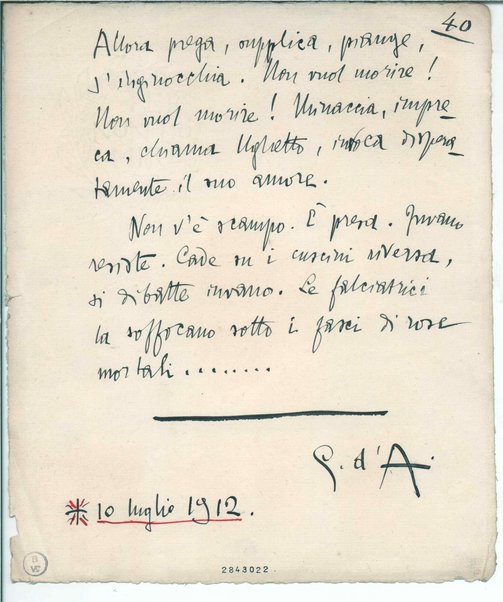 40
Allora prega, supplica, piange,
s'inginocchia. Non vuol morire!
Non vuol morire! Minaccia, impre-
ca, chiama Ughetto, invoca dispera-
tamente il suo amore.
Non v'è scampo. È presa. Invano
resiste. Cade su i cuscini riversa,
si dibatte invano. Le falciatrici
la soffocano sotto i fasci di rose
mortali ........
G. d'A.
10 luglio 1912.
2843022